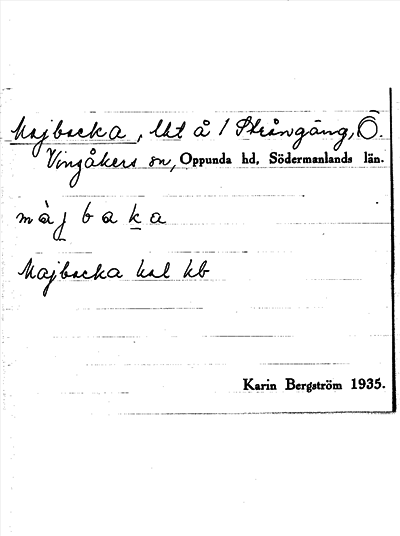 Majbacka, lht å 1 Strångäng, Ö.
Vingåkers sn, Oppunda hd, Södermanlands län.
màj b a k a
Majbacka hal kb
Karin Bergström 1935.